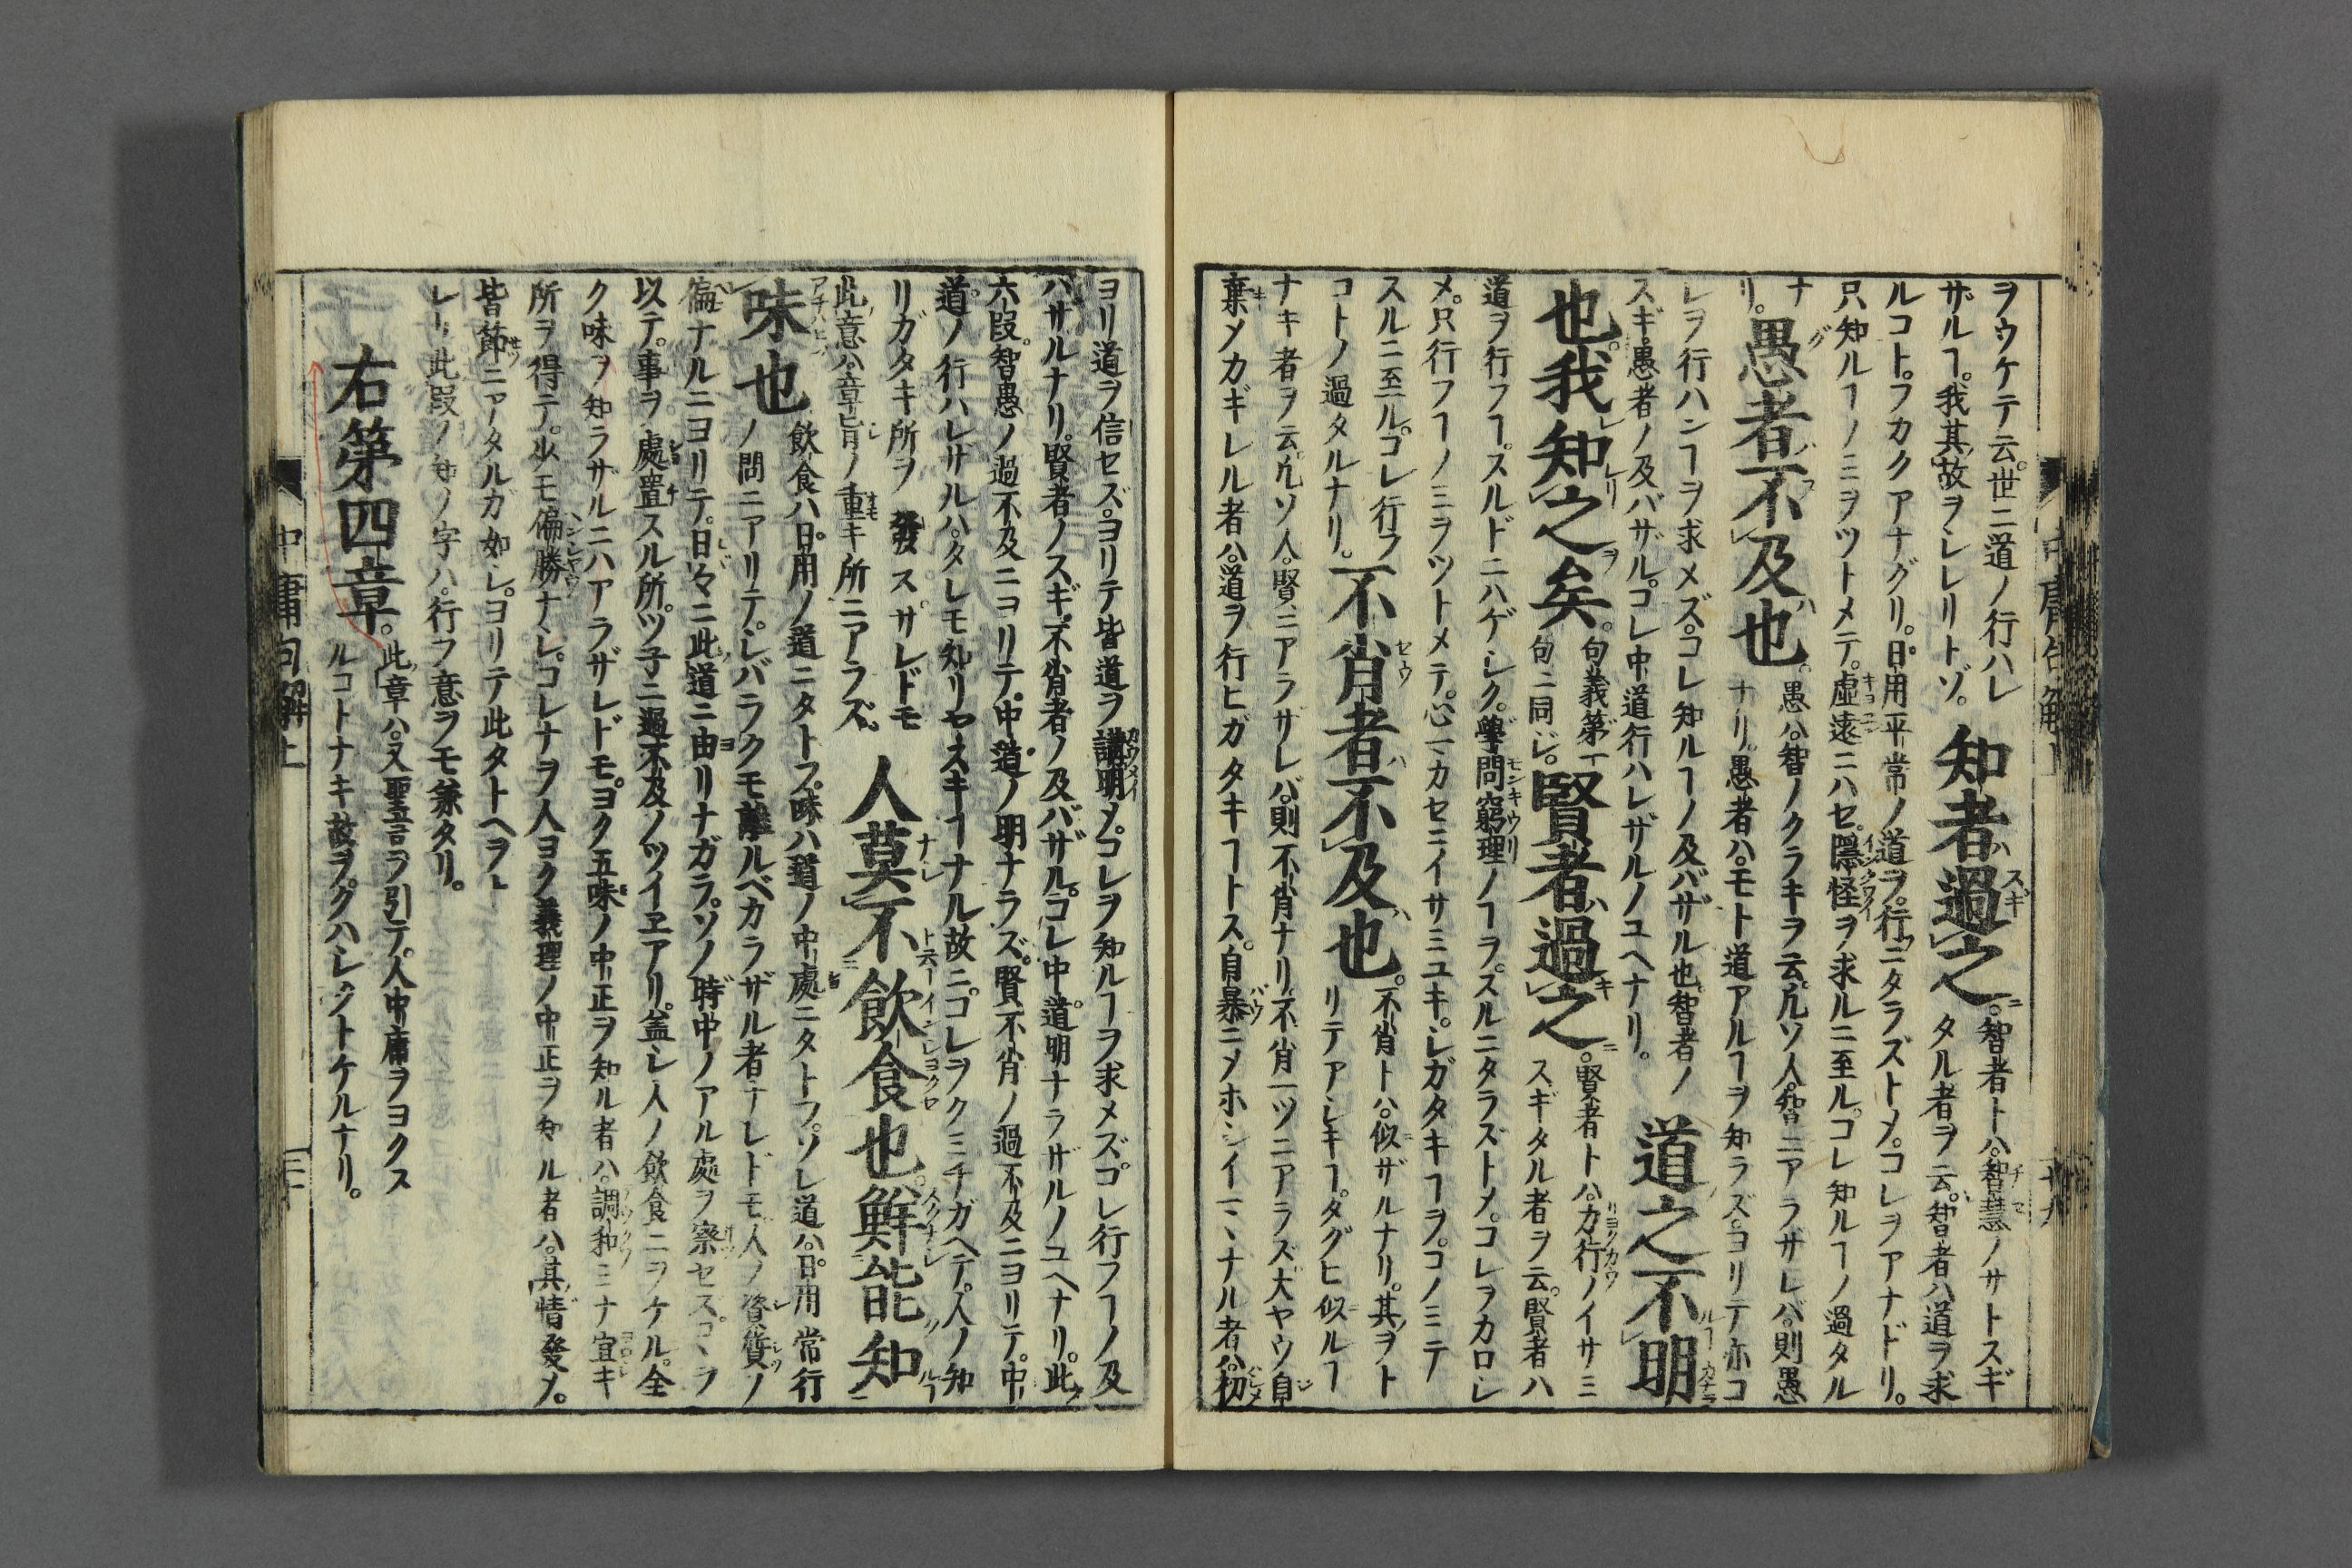 ヲウケテ云。世ニ道ノ行ハレ
ザルヿ。我其故ヲシレリトゾ。知者過之。智者トハ。智慧ノサトスギ
タル者ヲ云。智者ハ道ヲ求
ルコト。フカクアナグリ。日用平常ノ道ヲ。行ニタラズトメ。コレヲアナドリ。
只知ルヿノミヲツトメテ。虚遠ニハセ。隱怪ヲ求ルニ至ル。コレ知ルヿノ過タル
ナリ。愚者不及也。愚ハ。智ノクラキヲ云。凡ソ人。智ニアラザレバ。則愚
ナリ。愚者ハ。モト道アルヿヲ知ラズ。ヨリテ亦コ
レヲ行ハンヿヲ求メズ。コレ知ルヿノ及バザル也。智者ノ
スギ。愚者ノ及バザル。コレ中道行ハレザルノユヘナリ。道之不明
也我知之矣。句義第一句ニ同ジ。賢者過之。賢者トハ。力行ノイサミ
スギタル者ヲ云。賢者ハ
道ヲ行フヿ。スルドニハゲシク。學問窮理ノヿヲ。スルニタラズトメ。コレヲカロシ
メ。只行フヿノミヲツトメテ。心ニカセニイサミユキ。シガタキヿヲ。コノミテ
スルニ至ル。コレ行フ
コトノ過タルナリ。不肖者不及也。不肖トハ。似ザルナリ。其ヲト
リテアシキヿ。タグヒ似ルヿ
ナキ者ヲ云。凡ソ人。賢ニアラザレバ。則不肖ナリ。不肖一ツニアラズ。大ヤウ自
棄メカギレル者ハ。道ヲ行ヒガタキヿトス。自暴ニメホシイマヽナル者ハ。初
ヨリ道ヲ信セズ。ヨリテ皆道ヲ講明メ。コレヲ知ルヿヲ求メズ。コレ行フヿノ及
バザルナリ。賢者ノスギ。不肖者ノ及バザル。コレ中道明ナラザルノユヘナリ。此
六段智愚ノ過不及ニヨリテ。中道ノ明ナラズ。賢不肖ノ過不及ニヨリテ。中
道ノ行ハレザルハ。タレモ知リヤスキヿナル故ニ。コレヲクミチガヘテ。人ノ知
リガタキ所ヲ發スサレドモ
此意ハ。章旨ノ重キ所ニアラズ。人莫不飲食也。鮮能知
味也。飲食ハ。日用ノ道ニタトフ。味ハ道ノ中處ニタトフ。ソレ道ハ。日用常行
ノ間ニアリテ。シバラクモ離ルベカラザル者ナレドモ。人ノ資質ノ
偏ナルニヨリテ。日々ニ此道ニ由リナガラ。ソノ時中ノアル處ヲ察セス。コヽヲ
以テ。事ヲ處置スル所。ツ子ニ過不及ノツイエアリ。蓋シ人ノ飲食ニヲケル。全
ク味ヲ知ラサルニハアラザレドモ。ヨク五味ノ中正ヲ知ル者ハ。調和ミナ宜キ
所ヲ得テ。少モ偏勝ナシ。コレナヲ人ヨク義理ノ中正ヲ知ル者ハ。其情發メ。
皆節ニアタルガ如シ。ヨリテ此タトヘヲト
レリ。此段ノ知ノ字ハ。行フ意ヲモ兼タリ。
右第四章。此章ハ。又聖言ヲ引テ。人中庸ヲヨクス
ルコトナキ故ヲ。クハシクトケルナリ。
中庸句解上
三十